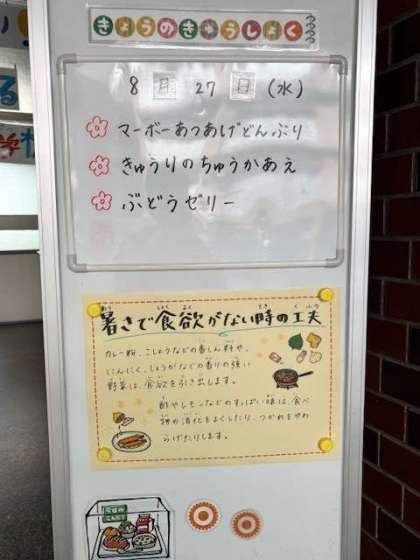 きょうのきゅうしょく
8月27日(水)
マーボーあつあげどんぶり
きゅうりのちゅうかあえ
ぶどうゼリー
暑さで食欲がない時の工夫
カレー粉、こしょうなどの香しん料や、
にんにく、しょうがなどの香りの強い
野菜は、食欲を引き出します。
酢やレモンなどのすっぱい味は、食べ
物の消化をよくしたり、つかれをやわ
らげたりします。